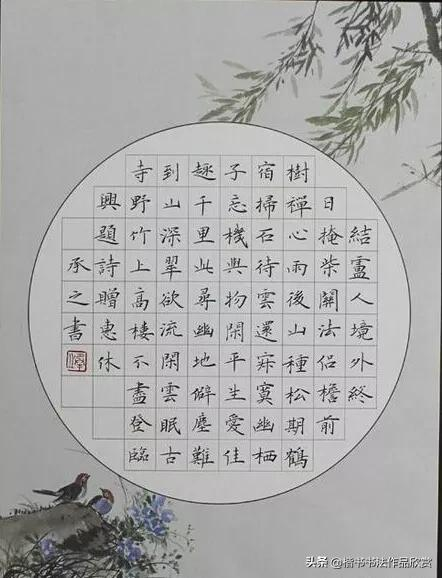 結廬人境外終
日掩柴關法侶檐前
樹禪心雨後山種松期鶴
宿掃石待雲還寂寞幽栖
子忘機與物閑平生愛佳
趣千里此尋幽地僻塵難
到山深翠欲流閑雲眠古
寺野竹上高樓不盡登臨
興題詩贈惠休
承之書
头条 @楷书书法作品欣赏